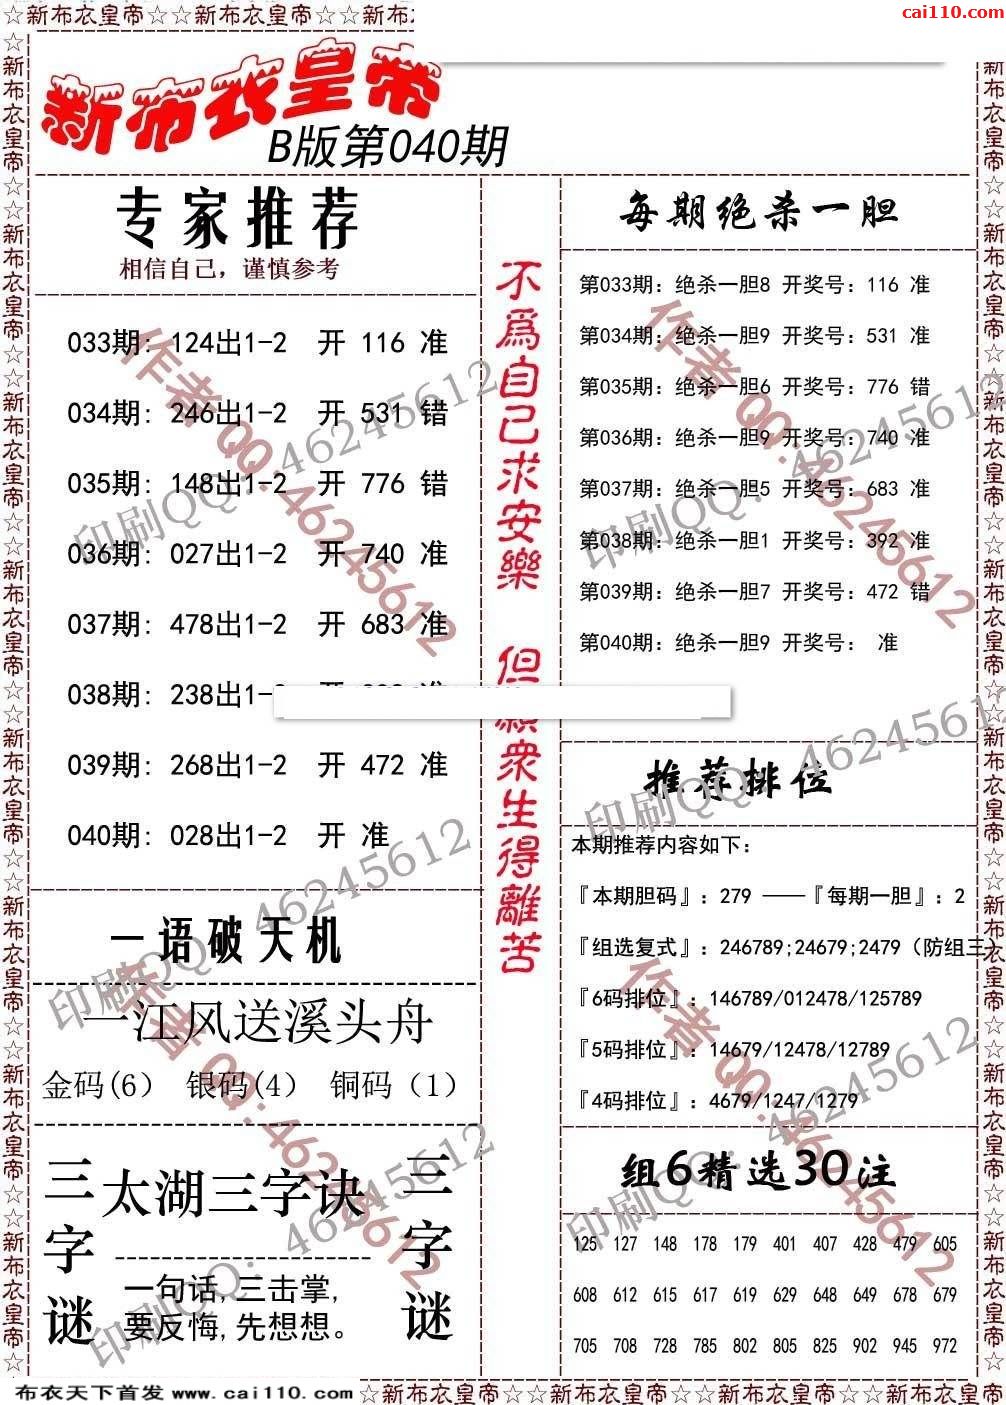 ☆新布衣皇帝☆☆新布衣皇帝☆☆新布
cai110.com
新布衣皇帝
B版第040期
专家推荐
相信自己，谨慎参考
033期: 124出1-2 开 116 准
034期: 246出1-2 开 531 错
035期: 148出1-2 开 776 错
036期: 027出1-2 开 740 准
037期: 478出1-2 开 683 准
038期: 238出1-
039期: 268出1-2 开 472 准
040期: 028出1-2 开 准
一语破天机
一江风送溪头舟
金码(6） 银码(4） 铜码（1）
三字谜
太湖三字诀
一句话,三击掌,
要反悔,先想想。
三字谜
不為自己求安樂 但願衆生得離苦
每期绝杀一胆
第033期: 绝杀一胆8 开奖号: 116 准
第034期: 绝杀一胆9 开奖号: 531 准
第035期: 绝杀一胆6 开奖号: 776 错
第036期: 绝杀一胆9 开奖号: 740 准
第037期: 绝杀一胆5 开奖号: 683 准
第038期: 绝杀一胆1 开奖号: 392 准
第039期: 绝杀一胆7 开奖号: 472 错
第040期: 绝杀一胆9 开奖号: 准
推荐排位
本期推荐内容如下:
『本期胆码』: 279 ——『每期一胆』: 2
『组选复式』: 246789;24679;2479（防组三）
『6码排位』: 146789/012478/125789
『5码排位』: 14679/12478/12789
『4码排位』: 4679/1247/1279
组6精选30注
125 127 148 178 179 401 407 428 479 605
608 612 615 617 619 629 648 649 678 679
705 708 728 785 802 805 825 902 945 972
作者QQ:46245612
印刷QQ: 46245612
布衣天下首发 www.cai110.com
☆新布衣皇帝☆☆新布衣皇帝☆☆新布衣皇帝☆☆新布衣皇帝☆